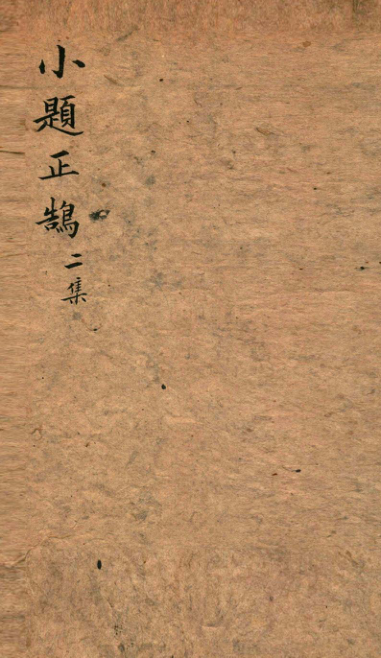 小題正鵠二集